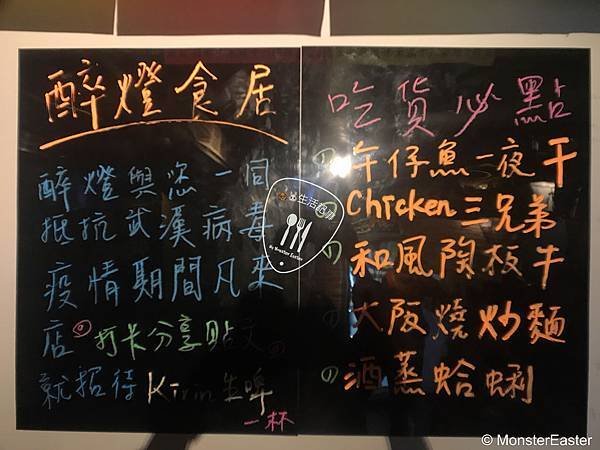 醉燈食居
醉燈與您一同
抵抗武漢病毒
疫情期間凡來
店打卡分享貼文
就招待Kirin生啤
一杯
吃貨必點
午仔魚一夜干
Chicken三兄弟
和風陶板牛
大阪燒炒麵
酒蒸蛤蜊
© MonsterEaster